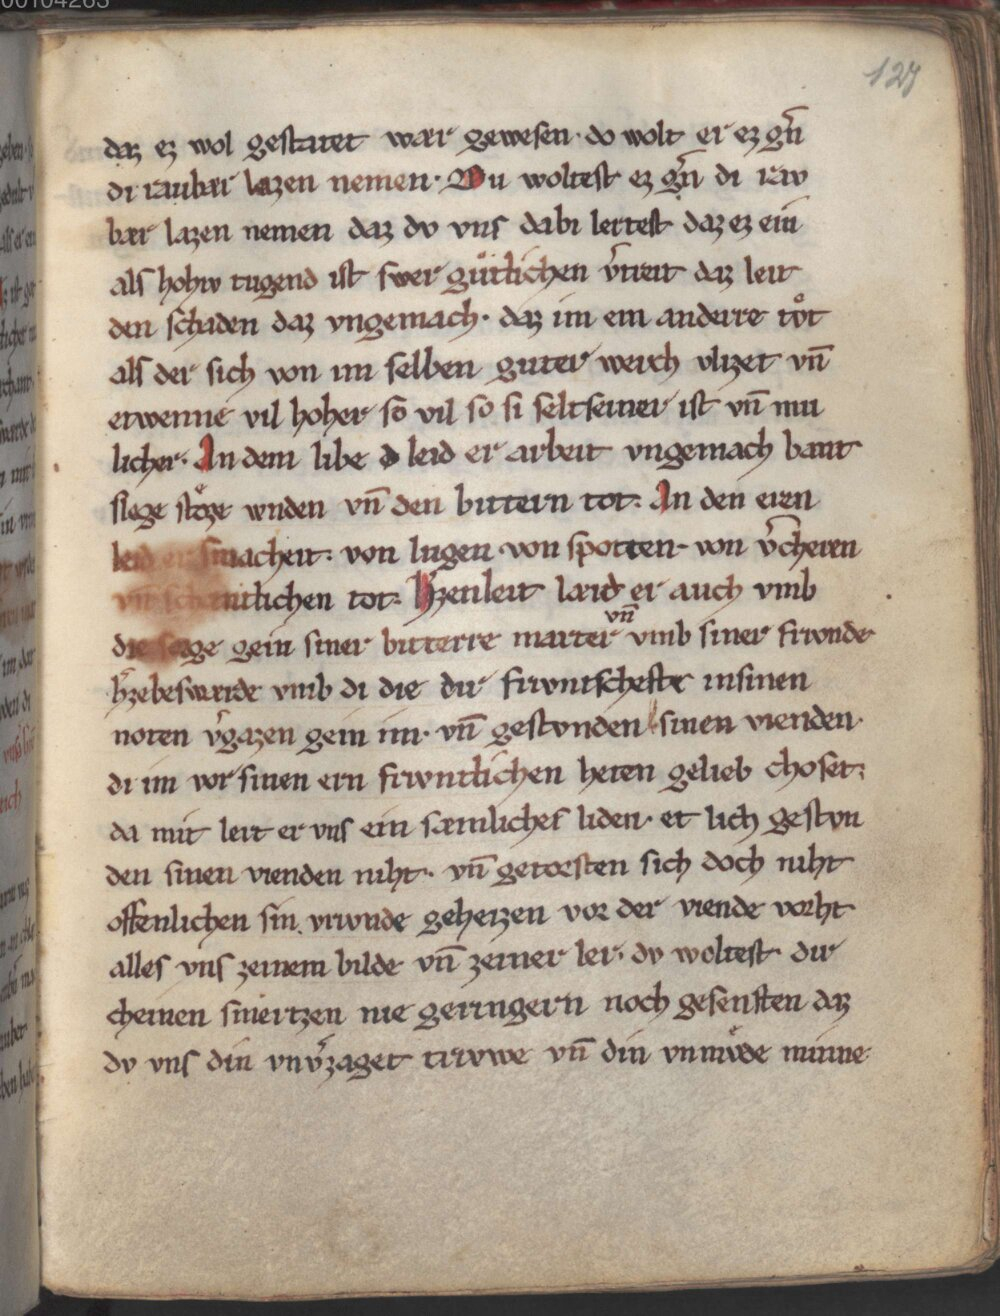 127
daz ez wol gestatet wær gewesen· do wolt er ez gn̄
di raubær lazen nemen· Du woltest ez gn̄ di rav
bær lazen nemen daz dv vns dabi lertest daz ez ein
als hohiv tugend ist swer guͤtlichen v̄treit daz leit
den schaden daz vngemach· daz im ein anderre toͤt
als der sich von im selben guter werch vlizet vn̄
etwenne vil hoher so vil so si seltseiner ist vn̄ mu
licher· An dem libe leid er arbeit vngemach bant
slege stoͤze wnden vn̄ den bittern tot· An den eren
leid er smacheit· von lugen von spotten· von v̄cheren
vn̄ schantlichen tot· h̄zenleit læid er auch vmb
die sorge gein siner bitterre marter vn̄ vmb siner frivnde
h̄zebeswærde vmb di die dir frivntschefte in sinen
noten v̄gazen gein im· vn̄ gestvnden sinen vienden·
di im vor sinen ern frivntlichen heten gelieb choset·
da mit leit er vns ein sæmliches liden· et lich gestvn
den sinen vienden niht· vn̄ getorsten sich doch niht
offenlichen sin vrivnde geheizen vor der viende vorht
alles vns zeinem bilde vn̄ zeiner ler· dv woltest dir
cheinen smertzen nie geringern noch gesenften daz
dv vns din vnv̄zaget triwwe vn̄ din vnmuͤde minne